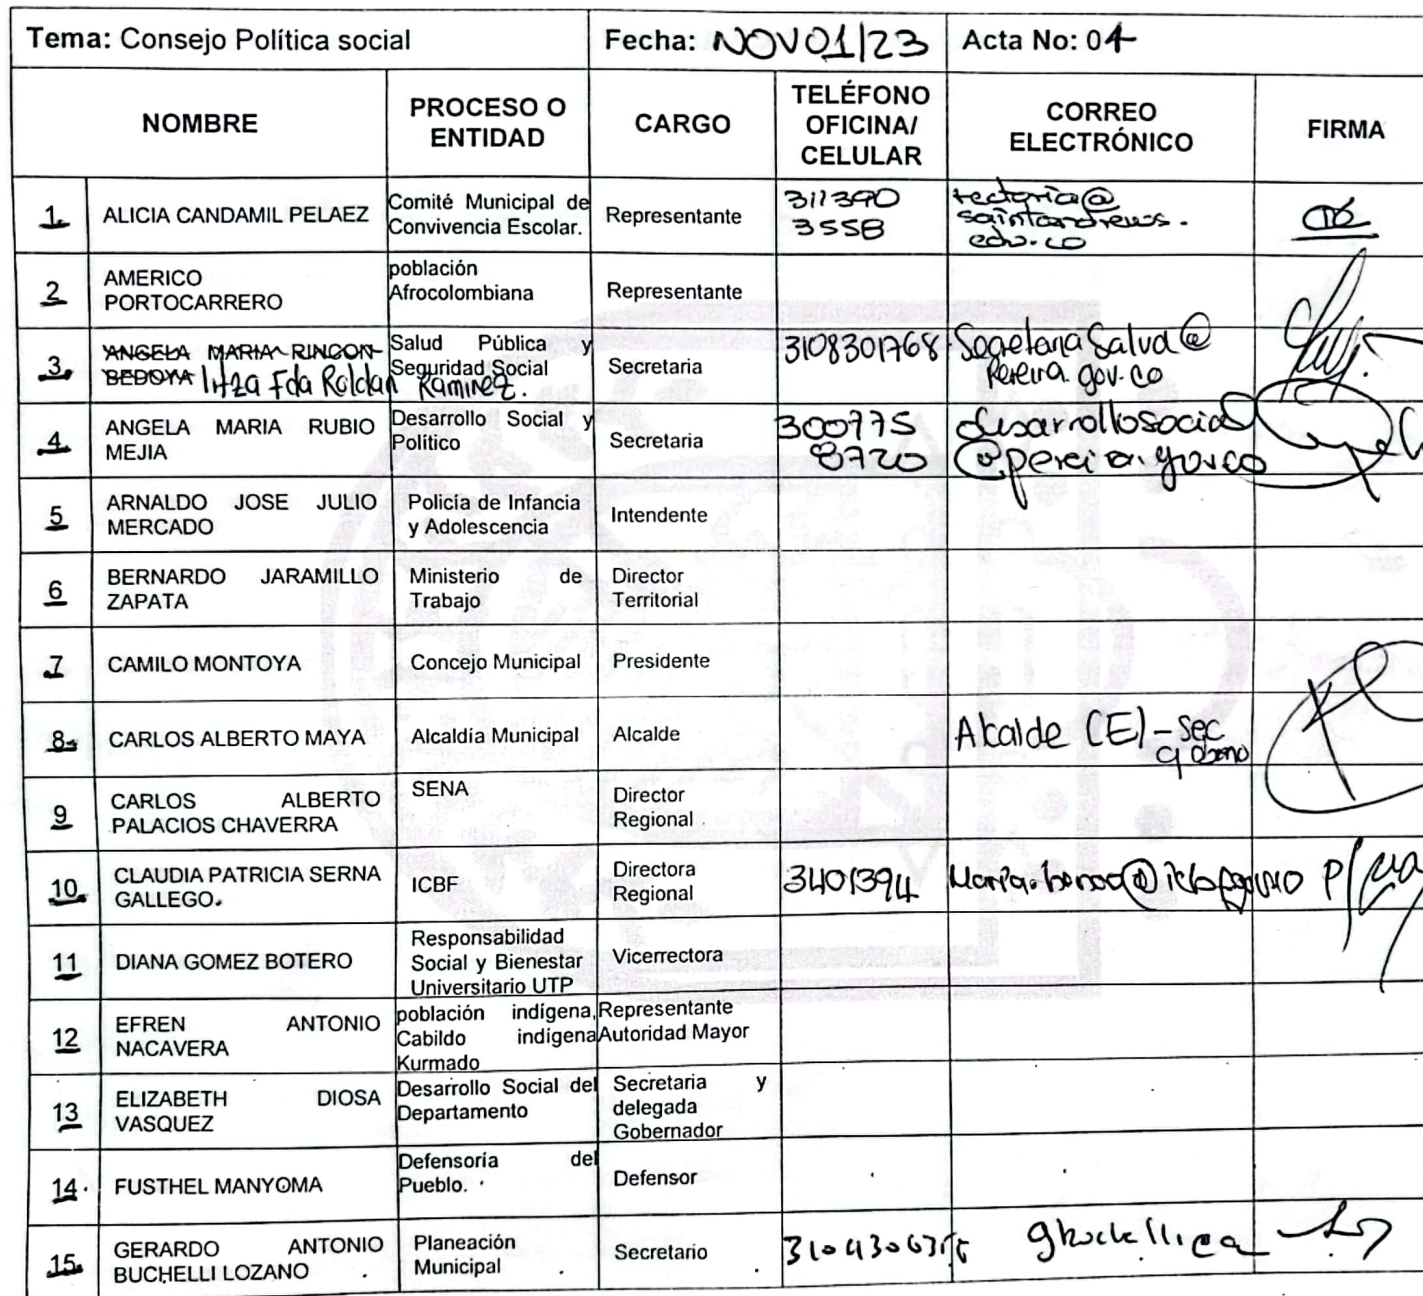 Tema: Consejo Política social Fecha: NOV 01/23 Acta No: 04
NOMBRE PROCESO O ENTIDAD CARGO TELÉFONO OFICINA/ CELULAR CORREO ELECTRÓNICO FIRMA
1. ALICIA CANDAMIL PELAEZ Comité Municipal de Convivencia Escolar. Representante 311390 3558 rectoria@ saintandrews. edu.co
2 AMERICO PORTOCARRERO población Afrocolombiana Representante
3. ANGELA MARIA RINCON BEDOYA Litza Fda Roldan Ramirez. Salud Pública y Seguridad Social Secretaria 3108301768 Secretaria Salud@ Pereira.gov.co
4 ANGELA MARIA RUBIO MEJIA Desarrollo Social y Político Secretaria 300775 8720 desarrollosocial @pereira.gov.co
5 ARNALDO JOSE JULIO MERCADO Policia de Infancia y Adolescencia Intendente
6 BERNARDO JARAMILLO ZAPATA Ministerio de Trabajo Director Territorial
7 CAMILO MONTOYA Concejo Municipal Presidente
8 CARLOS ALBERTO MAYA Alcaldía Municipal Alcalde Alcalde (E)-Sec
9 CARLOS ALBERTO PALACIOS CHAVERRA SENA Director Regional
10. CLAUDIA PATRICIA SERNA GALLEGO. ICBF Directora Regional 3401394
11 DIANA GOMEZ BOTERO Responsabilidad Social y Bienestar Universitario UTP Vicerrectora
12 EFREN ANTONIO NACAVERA población indígena, Cabildo indígena Kurmado Representante Autoridad Mayor
13 ELIZABETH DIOSA VASQUEZ Desarrollo Social del Departamento Secretaria y delegada Gobernador
14. FUSTHEL MANYOMA Defensoria del Pueblo. Defensor
15. GERARDO ANTONIO BUCHELLI LOZANO Planeación Municipal Secretario